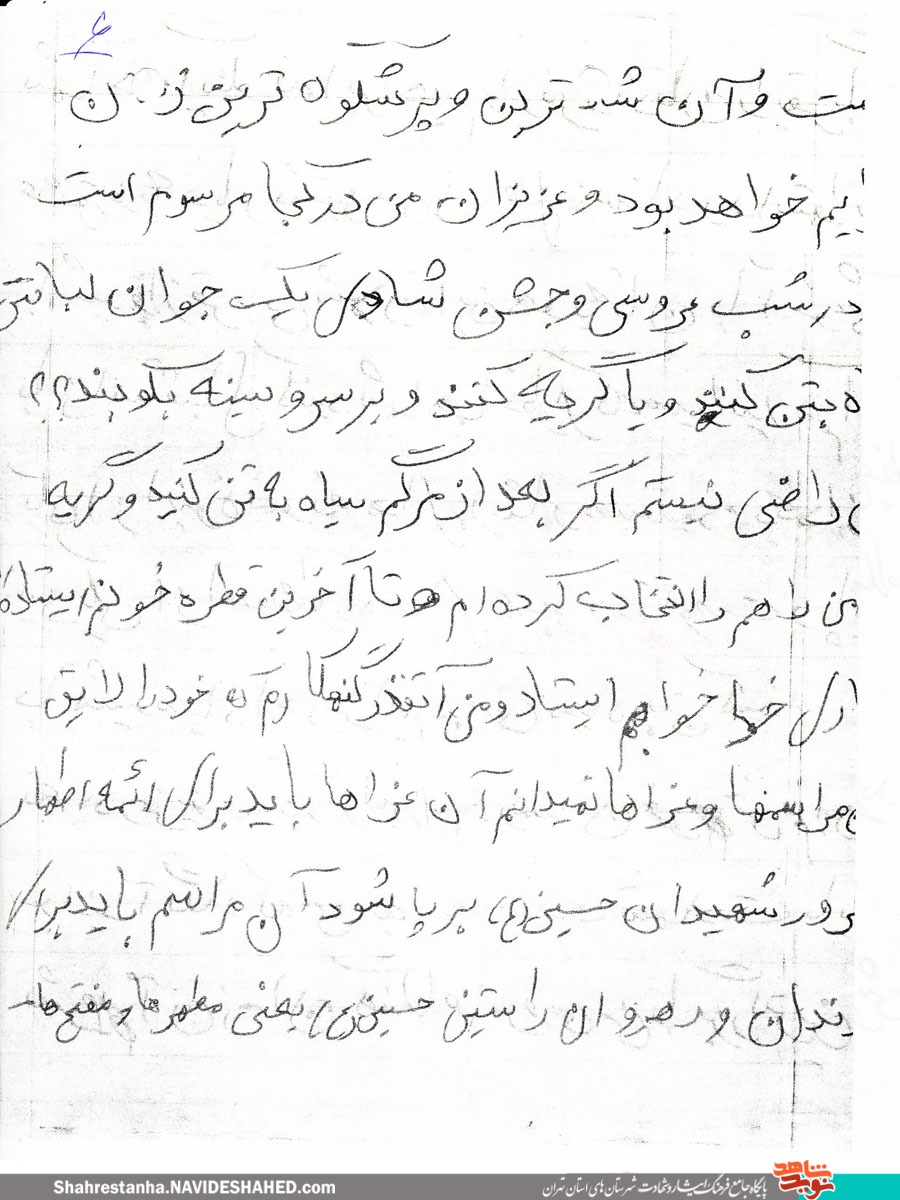 ۶
ست و آن شد ترین و پرشکوه ترین
ایم خواهد بود و عزیزان من در کجا مرسوم است
در شب عروسی و جشن شادی یک جوان لباس
ه بتن کنند و یا گریه کنند و بر سر و سینه بکوبند؟؟
راضی نیستم اگر بعد از مرگم سیاه به تن کنید و گریه
من راهم را انتخاب کرده ام تا آخرین قطره خونم ایستاده
خواهم ایستاد و من آنقدر گنهکارم که خود را لایق
مراسمها و عزاها نمیدانم آن عزاها باید برای ائمه اطهار
سرور شهیدان حسین (ع) بر پا شود آن مراسم باید برای
و رهروان راستین حسین (ع) یعنی مطهرها، مفتح ها
Shahrestanha.NAVIDESHAHED.com
پایگاه جامع فرهنگ ایثار و شهادت شهرستان های استان تهران
نوید شاهد